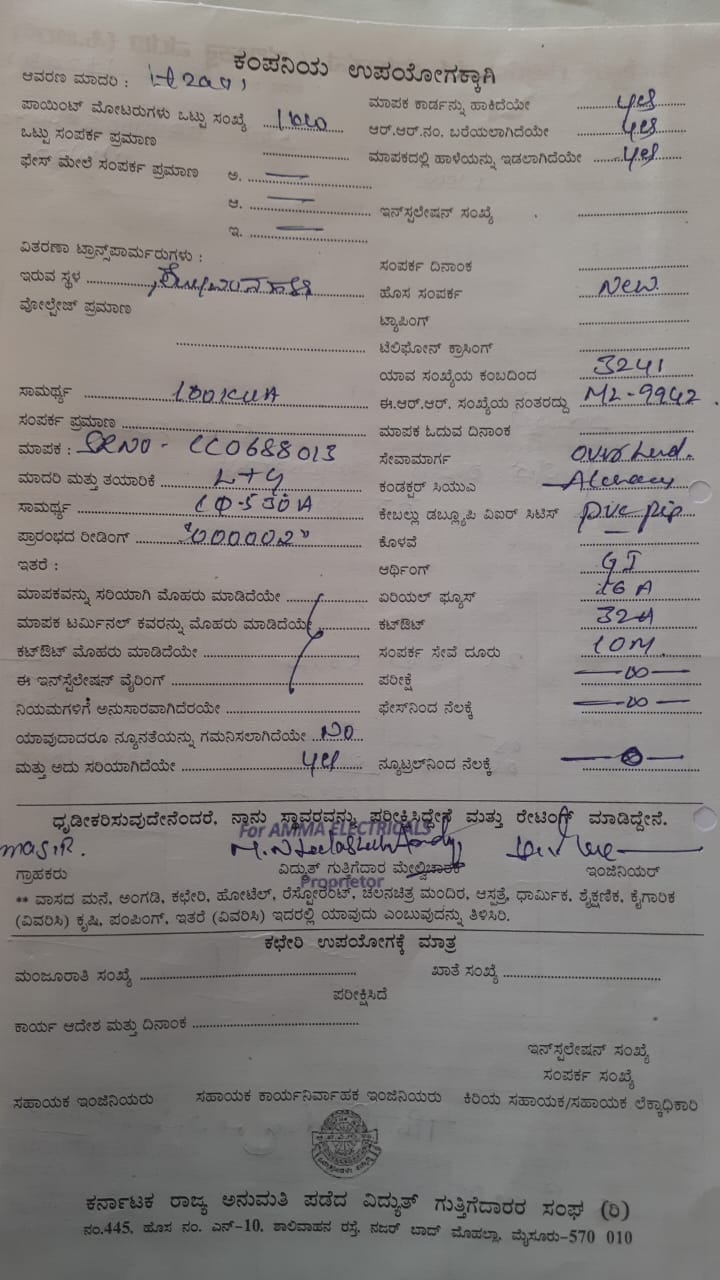 ಕಂಪನಿಯ ಉಪಯೋಗಕ್ಕಾಗಿ
ಆವರಣ ಮಾದರಿ :
ಮಾಪಕ ಕಾರ್ಡನ್ನು ಹಾಕಿದೆಯೇ yes
ಪಾಯಿಂಟ್ ಮೋಟರುಗಳು ಒಟ್ಟು ಸಂಖ್ಯೆ
ಆರ್.ಆರ್.ನಂ. ಬರೆಯಲಾಗಿದೆಯೇ yes
ಒಟ್ಟು ಸಂಪರ್ಕ ಪ್ರಮಾಣ
ಮಾಪಕದಲ್ಲಿ ಹಾಳೆಯನ್ನು ಇಡಲಾಗಿದೆಯೇ yes
ಫೇಸ್ ಮೇಲೆ ಸಂಪರ್ಕ ಪ್ರಮಾಣ ಅ.
ಆ.
ಇನ್‌ಸ್ಪಲೇಷನ್ ಸಂಖ್ಯೆ
ಇ.
ವಿತರಣಾ ಟ್ರಾನ್ಸ್‌ಪಾರ್ಮರುಗಳು :
ಸಂಪರ್ಕ ದಿನಾಂಕ
ಇರುವ ಸ್ಥಳ
ಹೊಸ ಸಂಪರ್ಕ New
ವೋಲ್ಟೇಜ್ ಪ್ರಮಾಣ
ಟ್ಯಾಪಿಂಗ್
ಟೆಲಿಫೋನ್ ಕ್ರಾಸಿಂಗ್
ಯಾವ ಸಂಖ್ಯೆಯ ಕಂಬದಿಂದ 3241
ಸಾಮರ್ಥ್ಯ 100KVA
ಈ.ಆರ್.ಆರ್. ಸಂಖ್ಯೆಯ ನಂತರದ್ದು ML-9942
ಸಂಪರ್ಕ ಪ್ರಮಾಣ
ಮಾಪಕ ಓದುವ ದಿನಾಂಕ
ಮಾಪಕ : SRNO - CC0688013
ಸೇವಾಮಾರ್ಗ
ಮಾದರಿ ಮತ್ತು ತಯಾರಿಕೆ L+G
ಕಂಡಕ್ಟರ್ ಸಿಯುಎ
ಸಾಮರ್ಥ್ಯ
ಕೇಬಲ್ಲು ಡಬ್ಲ್ಯೂಪಿ ವಿಐರ್ ಸಿಟಿಸ್ pvc pip
ಪ್ರಾರಂಭದ ರೀಡಿಂಗ್ "000002"
ಕೊಳವೆ
ಇತರೆ :
ಆರ್ಥಿಂಗ್ GI
ಮಾಪಕವನ್ನು ಸರಿಯಾಗಿ ಮೊಹರು ಮಾಡಿದೆಯೇ
ಏರಿಯಲ್ ಫ್ಯೂಸ್ 16 A
ಮಾಪಕ ಟರ್ಮಿನಲ್ ಕವರನ್ನು ಮೊಹರು ಮಾಡಿದೆಯೇ
ಕಟ್‌ಔಟ್ 32A
ಕಟ್‌ಔಟ್ ಮೊಹರು ಮಾಡಿದೆಯೇ
ಸಂಪರ್ಕ ಸೇವೆ ದೂರು 10M.
ಈ ಇನ್‌ಸ್ಪೆಲೇಷನ್ ವೈರಿಂಗ್
ಪರೀಕ್ಷೆ
ನಿಯಮಗಳಿಗೆ ಅನುಸಾರವಾಗಿದೆರಯೇ
ಫೇಸ್‌ನಿಂದ ನೆಲಕ್ಕೆ
ಯಾವುದಾದರೂ ನ್ಯೂನತೆಯನ್ನು ಗಮನಿಸಲಾಗಿದೆಯೇ NO
ಮತ್ತು ಅದು ಸರಿಯಾಗಿದೆಯೇ yes
ನ್ಯೂಟ್ರಲ್‌ನಿಂದ ನೆಲಕ್ಕೆ
ಧೃಡೀಕರಿಸುವುದೇನೆಂದರೆ, ನಾನು ಸ್ಥಾವರವನ್ನು ಪರೀಕ್ಷಿಸಿದ್ದೇನೆ ಮತ್ತು ರೇಟಿಂಗ್ ಮಾಡಿದ್ದೇನೆ.
For AMMA ELECTRICALS
ಗ್ರಾಹಕರು ವಿದ್ಯುತ್ ಗುತ್ತಿಗೆದಾರ ಮೇಲ್ವಿಚಾರಕ ಇಂಜಿನಿಯರ್
Proprietor
** ವಾಸದ ಮನೆ, ಅಂಗಡಿ, ಕಛೇರಿ, ಹೋಟೆಲ್, ರೆಸ್ಟೋರೆಂಟ್, ಚಲನಚಿತ್ರ ಮಂದಿರ, ಆಸ್ಪತ್ರೆ, ಧಾರ್ಮಿಕ, ಶೈಕ್ಷಣಿಕ, ಕೈಗಾರಿಕ
(ವಿವರಿಸಿ) ಕೃಷಿ, ಪಂಪಿಂಗ್, ಇತರೆ (ವಿವರಿಸಿ) ಇದರಲ್ಲಿ ಯಾವುದು ಎಂಬುವುದನ್ನು ತಿಳಿಸಿರಿ.
ಕಛೇರಿ ಉಪಯೋಗಕ್ಕೆ ಮಾತ್ರ
ಮಂಜೂರಾತಿ ಸಂಖ್ಯೆ ಖಾತೆ ಸಂಖ್ಯೆ
ಪರೀಕ್ಷಿಸಿದೆ
ಕಾರ್ಯ ಆದೇಶ ಮತ್ತು ದಿನಾಂಕ
ಇನ್‌ಸ್ಪಲೇಷನ್ ಸಂಖ್ಯೆ
ಸಂಪರ್ಕ ಸಂಖ್ಯೆ
ಸಹಾಯಕ ಇಂಜಿನಿಯರು ಸಹಾಯಕ ಕಾರ್ಯನಿರ್ವಾಹಕ ಇಂಜಿನಿಯರು ಕಿರಿಯ ಸಹಾಯಕ/ಸಹಾಯಕ ಲೆಕ್ಕಾಧಿಕಾರಿ
ಕರ್ನಾಟಕ ರಾಜ್ಯ ಅನುಮತಿ ಪಡೆದ ವಿದ್ಯುತ್ ಗುತ್ತಿಗೆದಾರರ ಸಂಘ (ರಿ)
ನಂ.445, ಹೊಸ ನಂ. ಎನ್-10, ಶಾಲಿವಾಹನ ರಸ್ತೆ, ನಜರ್ ಬಾದ್ ಮೊಹಲ್ಲಾ, ಮೈಸೂರು-570 010